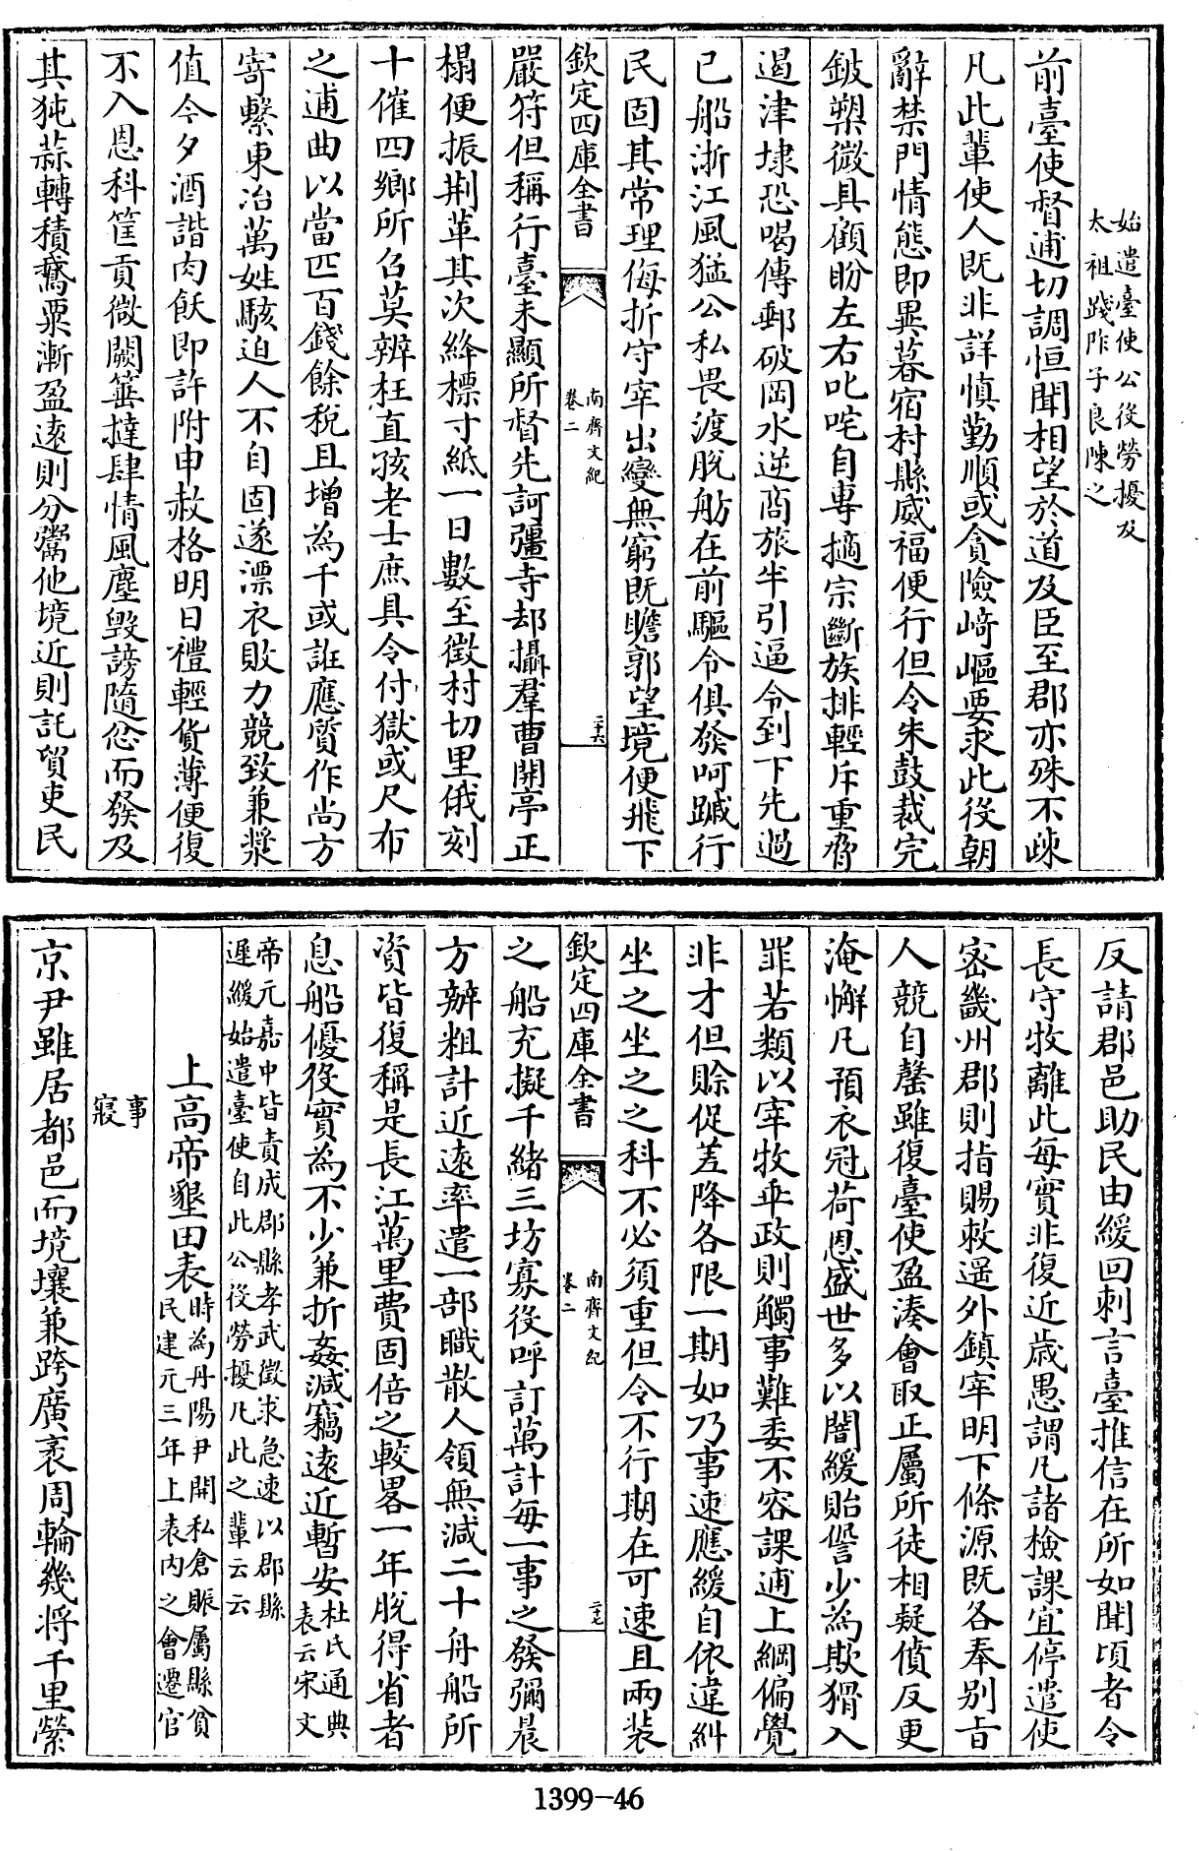 始遣臺使公役勞擾及
太祖踐阼子良陳之
前臺使督逋切調恒聞相望於道及臣至郡亦殊不疎
凡此輩使人既非詳慎勤順或貪險﨑嶇要求此役朝
辭禁門情態即異暮宿村縣威福便行但令朱鼓裁完
鈹槊微具顧盼左右叱咤自專擿宗斷族排輕斥重脅
遏津埭恐喝傳郵破岡水逆商旅半引逼令到下先過
已船浙江風猛公私畏渡脫舫在前驅令俱發呵蹴行
民固其常理侮折守宰出變無窮既瞻郭望境便飛下
欽定四庫全書
南齊文紀
卷二
二十六
嚴符但稱行臺未顯所督先訶彊寺却攝羣曹開亭正
榻便振荆革其次絳標寸紙一日數至徵村切里俄刻
十催四鄉所召莫辨枉直孩老士庶具令付獄或尺布
之逋曲以當匹百錢餘稅且增為千或誑應質作尚方
寄繫東冶萬姓駭迫人不自固遂漂衣敗力競致兼漿
值今夕酒諧肉飫即許附申赦格明日禮輕貨薄便復
不入恩科筐貢微闕箠撻肆情風塵毀謗隨忿而發及
其㹠蒜轉積鵞粟漸盈遠則分鬻他境近則託貿吏民
反請郡邑助民由緩回刺言臺推信在所如聞頃者令
長守牧離此每實非復近歲愚謂凡諸檢課宜停遣使
密畿州郡則指賜敕遥外鎮宰明下條源既各奉别㫖
人競自罄雖復臺使盈湊會取正屬所徒相疑僨反更
淹懈凡預衣冠荷恩盛世多以闇緩貽諐少為欺猾入
罪若類以宰牧乖政則觸事難委不容課逋上綱偏覺
非才但賒促差降各限一期如乃事速應緩自依違糾
坐之坐之之科不必須重但令不行期在可速且兩装
欽定四庫全書
南齊文紀
卷二
二十七
之船充擬千緒三坊寡役呼訂萬計每一事之發彌晨
方辦粗計近遠率遣一部職散人領無減二十舟船所
資皆復稱是長江萬里費固倍之較畧一年脫得省者
息船優役實為不少兼折姦減竊遠近暫安杜氏通典
表云宋文
帝元嘉中皆責成郡縣孝武徵求急速以郡縣
遲緩始遣臺使自此公役勞擾凡此之輩云云
上高帝墾田表時為丹陽尹開私倉賑屬縣貧
民建元三年上表内之會遷官
事
寢
京尹雖居都邑而境壤兼跨廣袤周輪幾将千里縈
1399-46